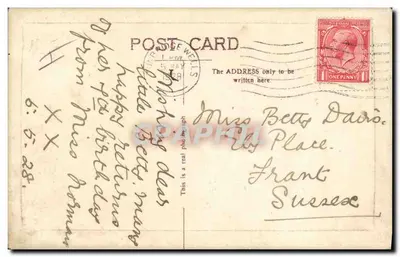 POST CARD
TUNBRIDGE WELLS
The ADDRESS only to be
written here.
ONE PENNY
Wishing dear
little Betty. many
happy returns
of her 9d birthday
from Miss Norman
X X
6.5.28.
This is a real photograph
Miss Betty Davis.
Ely Place.
Frant
Sussex